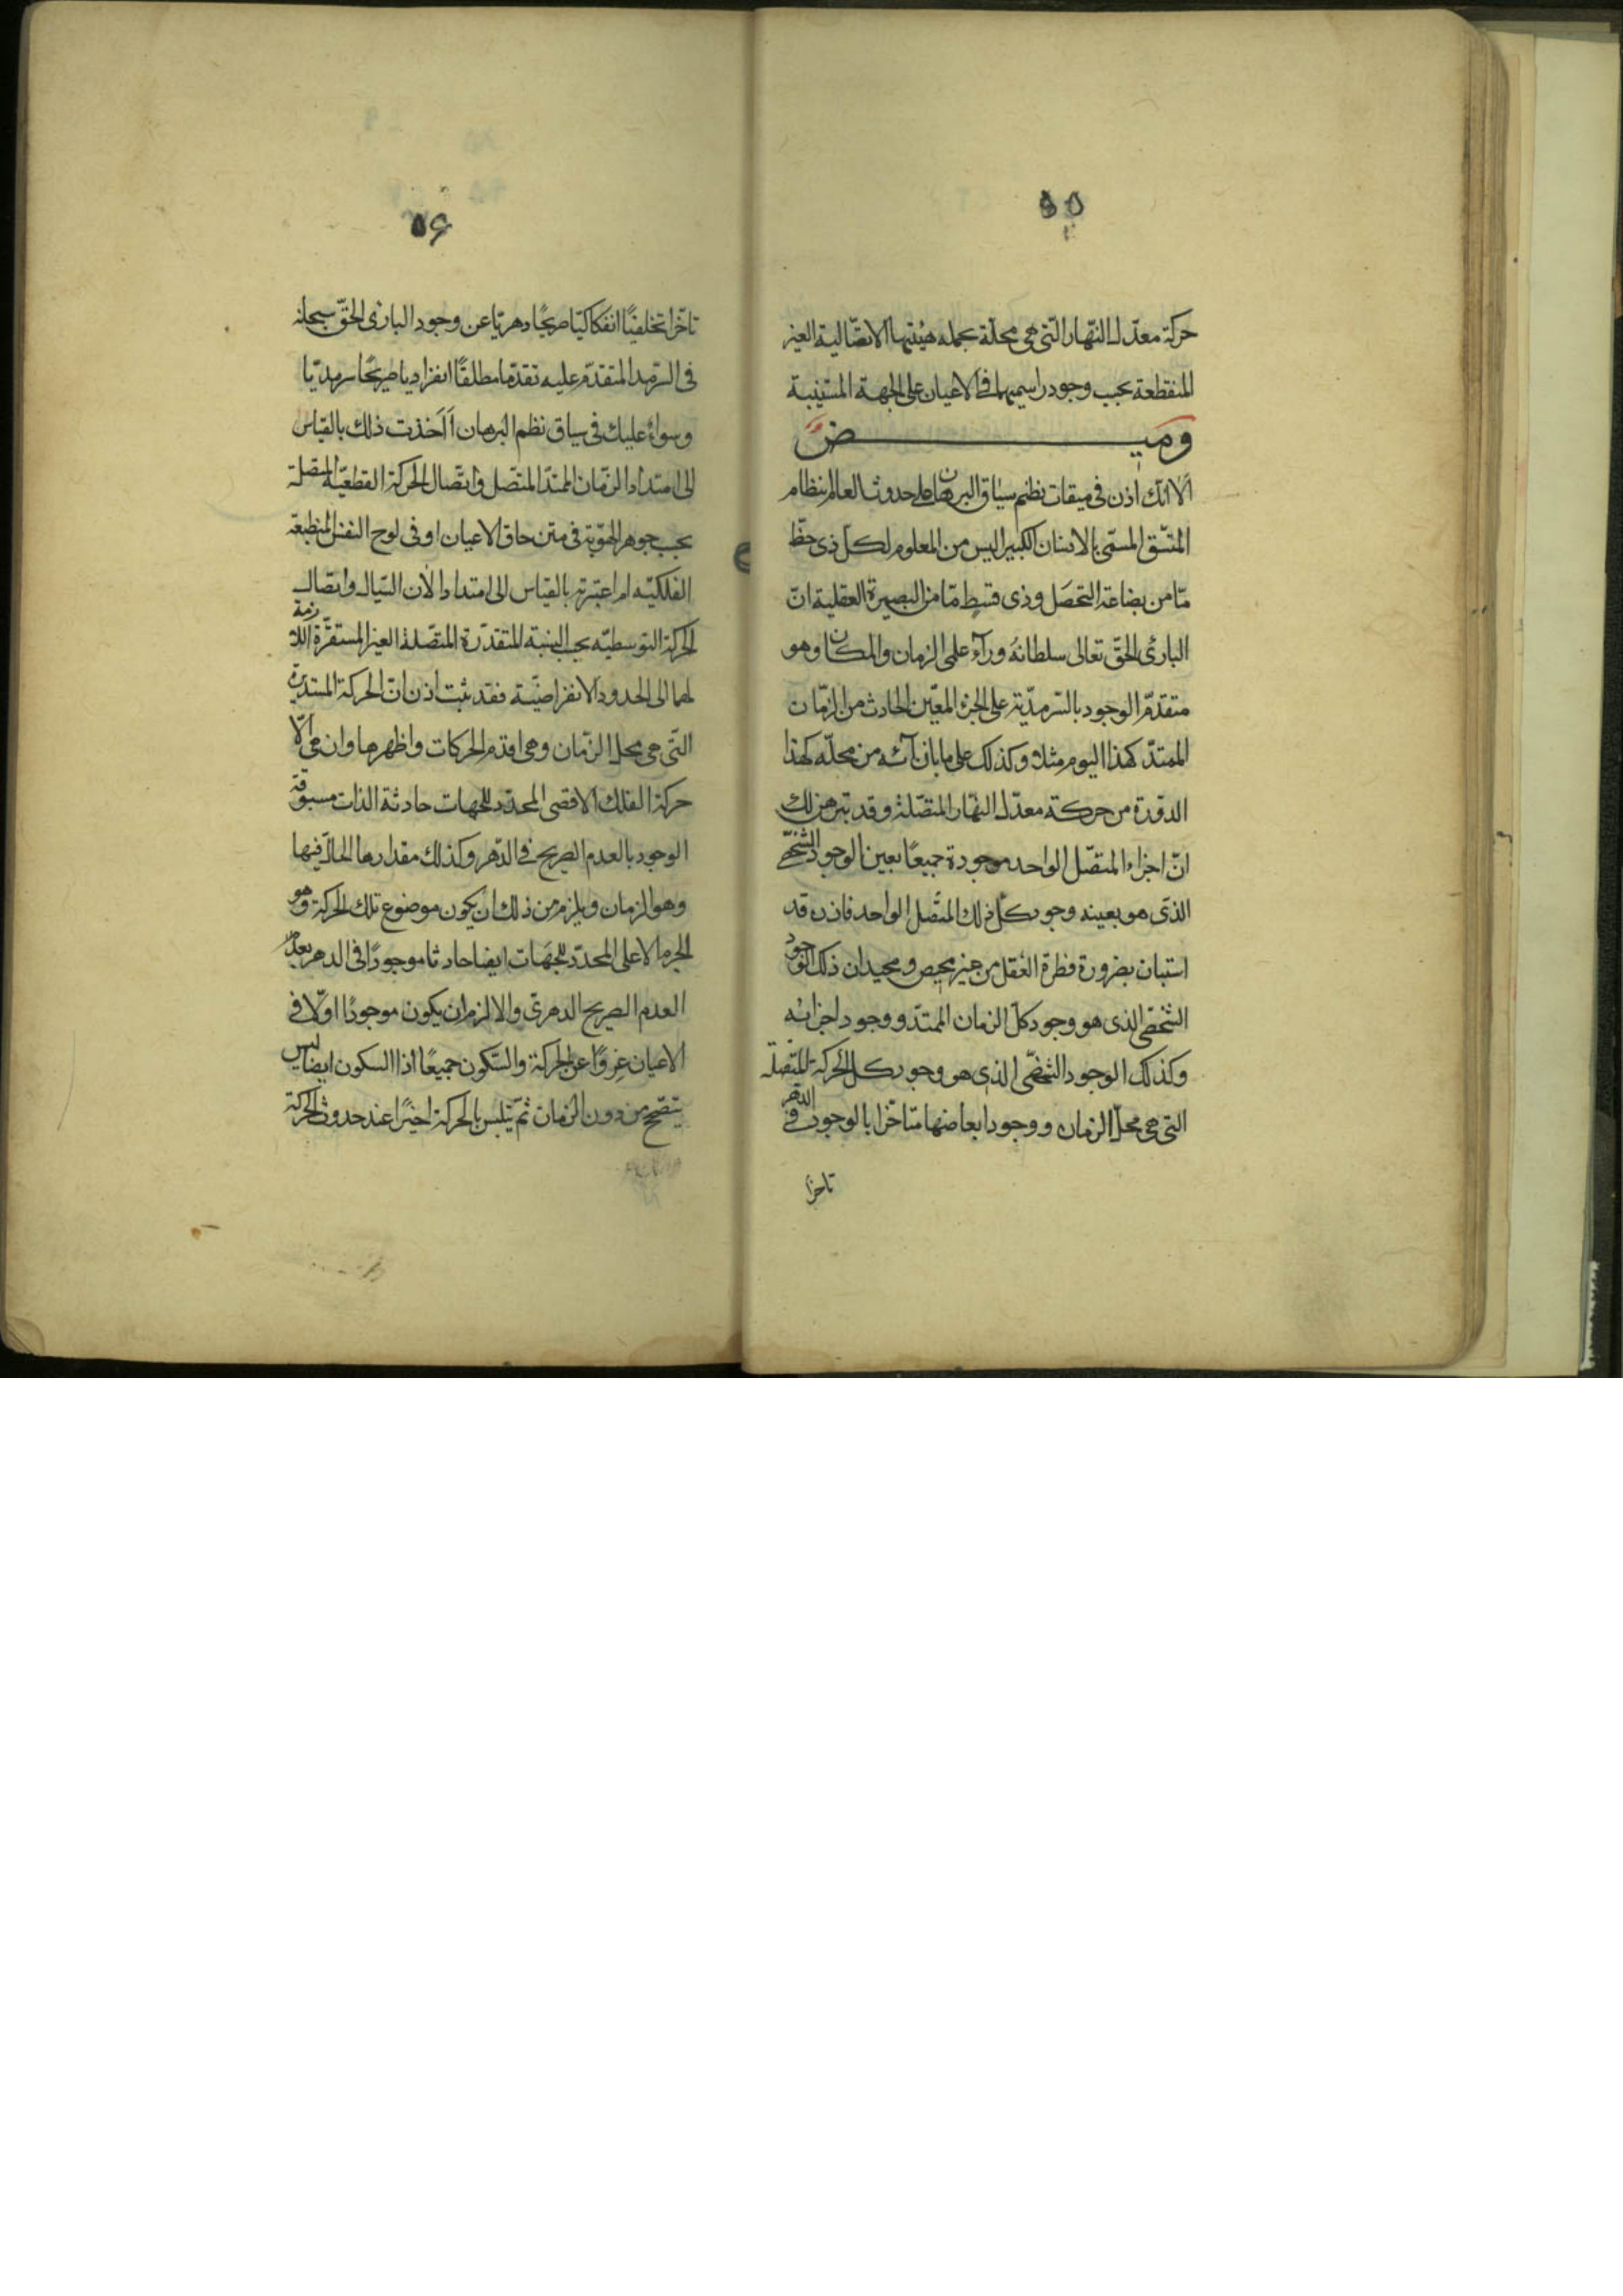 ۵۵
حركة معدّل النّهار الّتى هى محلّه بجمله هيئتها الاتصّالية الغير
المنقطعة بحسب وجود راسميهما فى الاعيان على الجهة المستبينة
وميض
ألا انّك اذن فى ميقات نظم سياق البرهان على حدوث العالم بنظام
المتّسق المسمّى بالانسان الكبير اليس من المعلوم لكل ذى حظّ
مّا من بضاعة التحصّل وذى قسط مّا من البصيرة العقلية انّ
البارئ الحقّ تعالى سلطانهُ ورآء على الزمان والمكان وهو
متقدّم الوجود بالسّرمديّة على الجزء المعيّن الحادث من الزمّان
الممتدّ كهذا اليوم مثلا وكذلك على ما بازآئه من محلّه كهذا
الدّورة من حركة معدّل النهّار المتصّلة وقد تبرهن لك
انّ اجزاء المتصّل الواحد موجودة جميعًا بعين الوجود الشخّصى
الذى هو بعينه وجود كلّ ذلك المتّصل الواحد فاذن قد
استبان بضرورة فطرة العقل من غير محيص ومحيد ان ذلك الوجود
الشخّصى الذى هو وجود كلّ الزمان الممتدّ ووجود اجزائه
وكذلك الوجود الشخّصّى الذى هو وجود كل الحركة المتّصلة
التى هى محلّ الزمان ووجود ابعاضها متأخّرا بالوجود فى الدّهر
تاخرا
۵۶
تاخّرا تخلفيًّا انفكاكيّا صريحًا دهريّا عن وجود البارئ الحقّ سبحانه
فى السّرمد المتقدّم عليه تقدّما مطلقًا انفراديا صريحًا سرمديّا
وسواءٌ عليك فى سياق نظم البرهان أأخذت ذلك بالقياس
الى امتداد الزمّان الممتدّ المتصّل واتصّال الحركة القطعيّة المتصلة
بحسب جوهر الهويّة فى متن حاق الاعيان او فى لوح النفس المنطبعة
الفلكيّه ام اعتبرته بالقياس الى امتداد الآن السيّال واتصال
الحركة التوسطيّه بحسب النسبة المتقدّرة المتصّلة الغير المستقرّة اللازمة
لهما الى الحدود الانفراضيّة فقد ثبت اذن انّ الحركة المستديرة
التّى هى محل الزمّان وهى اقدم الحركات واظهرها وان هى الّا
حركة الفلك الاقصى المحدّد للجهات حادثة الذات مسبوقة
الوجود بالعدم الصريح فى الدّهر وكذلك مقدارها الحالّ فيها
وهو الزمان ويلزم من ذلك ان يكون موضوع تلك الحركة وهو
الجرم الاعلى المحدّد للجهَات ايضا حادثا موجودًا فى الدهر بعد
العدم الصريح الدهرىّ والا لزم ان يكون موجودًا اوّلا فى
الاعيان عروًا عن الحركة والسّكون جميعًا اذا السكون ايضا ليس
يتصّح من دون الزمان ثمّ يتلبس بالحركة اخيرًا عند حدوث الحركة